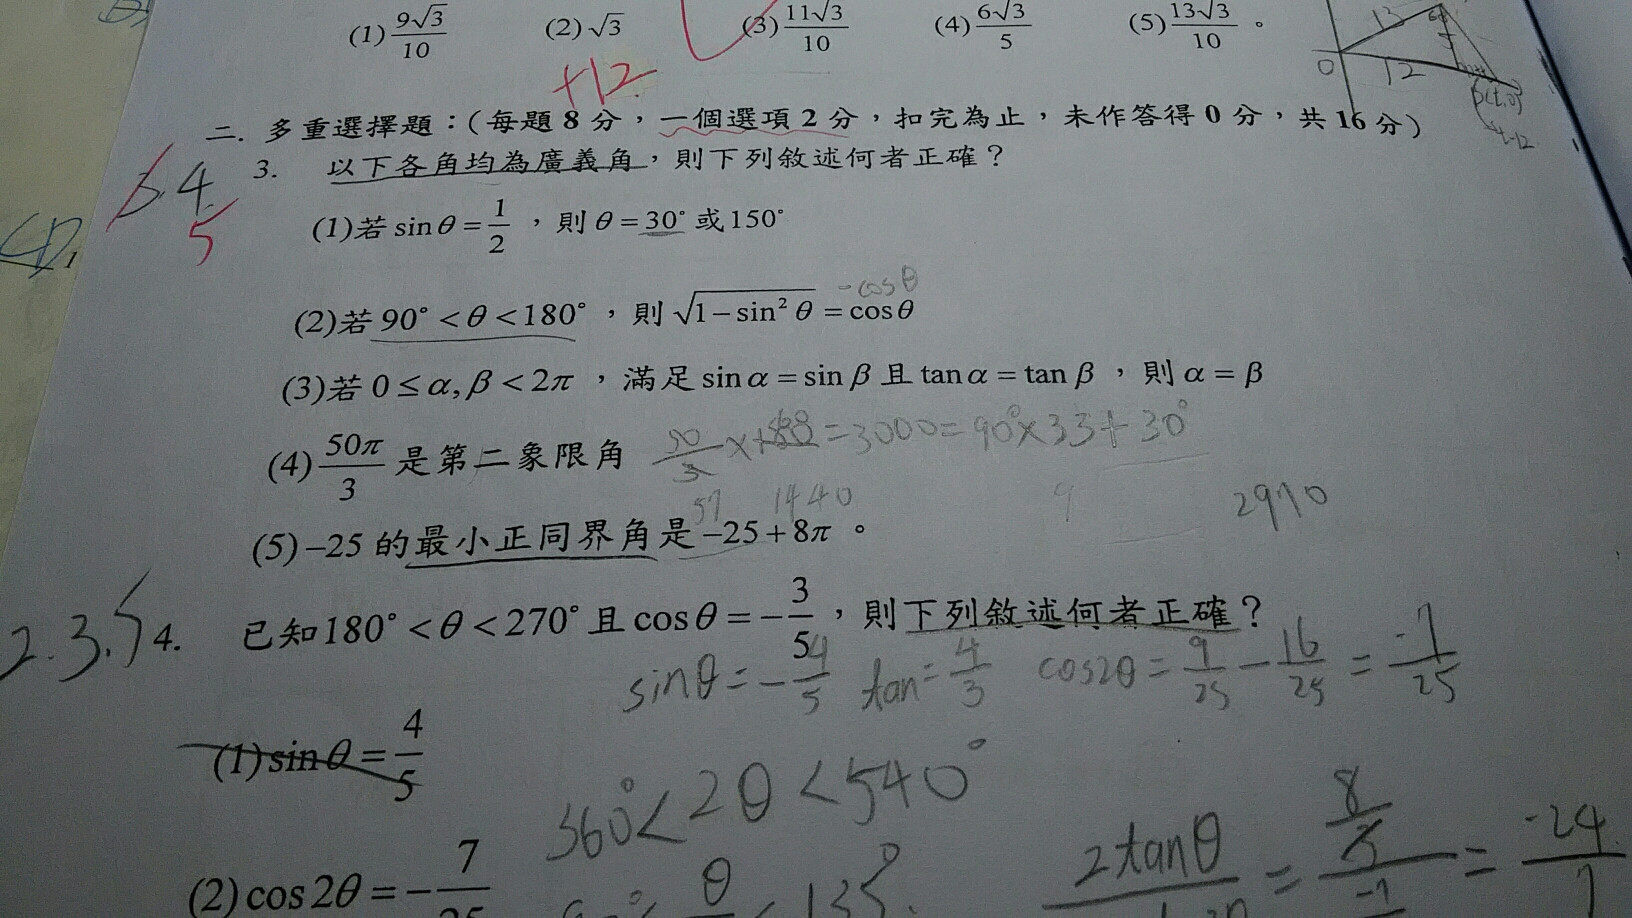 (1) 9√3/10 (2) √3 (3) 11√3/10 (4) 6√3/5 (5) 13√3/10 。
13
O 12
+12
二. 多重選擇題：(每題 8 分，一個選項 2 分，扣完為止，未作答得 0 分，共 16 分)
3. 以下各角均為廣義角，則下列敘述何者正確？
3.4.
5
(1)若 sinθ = 1/2 ，則 θ = 30° 或 150°
-cosθ
(2)若 90° < θ < 180° ，則 √(1−sin²θ) = cosθ
(3)若 0 ≤ α, β < 2π ，滿足 sinα = sinβ 且 tanα = tanβ ，則 α = β
(4) 50π/3 是第二象限角
50/3 × 180 = 3000 = 90° × 33 + 30°
57 1440 9 2970
(5) −25 的最小正同界角是 −25 + 8π 。
2.3.5
4. 已知 180° < θ < 270° 且 cosθ = −3/5 ，則下列敘述何者正確？
sinθ = −4/5 tan = 4/3 cos2θ = 9/25 − 16/25 = −7/25
(1) sinθ = 4/5
360° < 2θ < 540°
(2) cos2θ = −7/25
θ 135°
2tanθ = 8/3 = -24/7